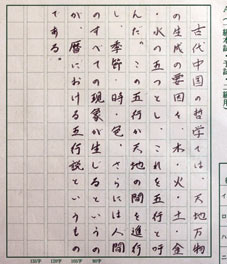 古代中国の哲学では、天地万物
の生成の要因を、木・火・土・金
・水の五つとし、これを五行と呼
んだ。この五行が天地の間を進行
し、季節・時・色、さらには人間
のすべての現象が生じるというの
が、暦における五行説というもの
である。
150字
120字
100字
80字